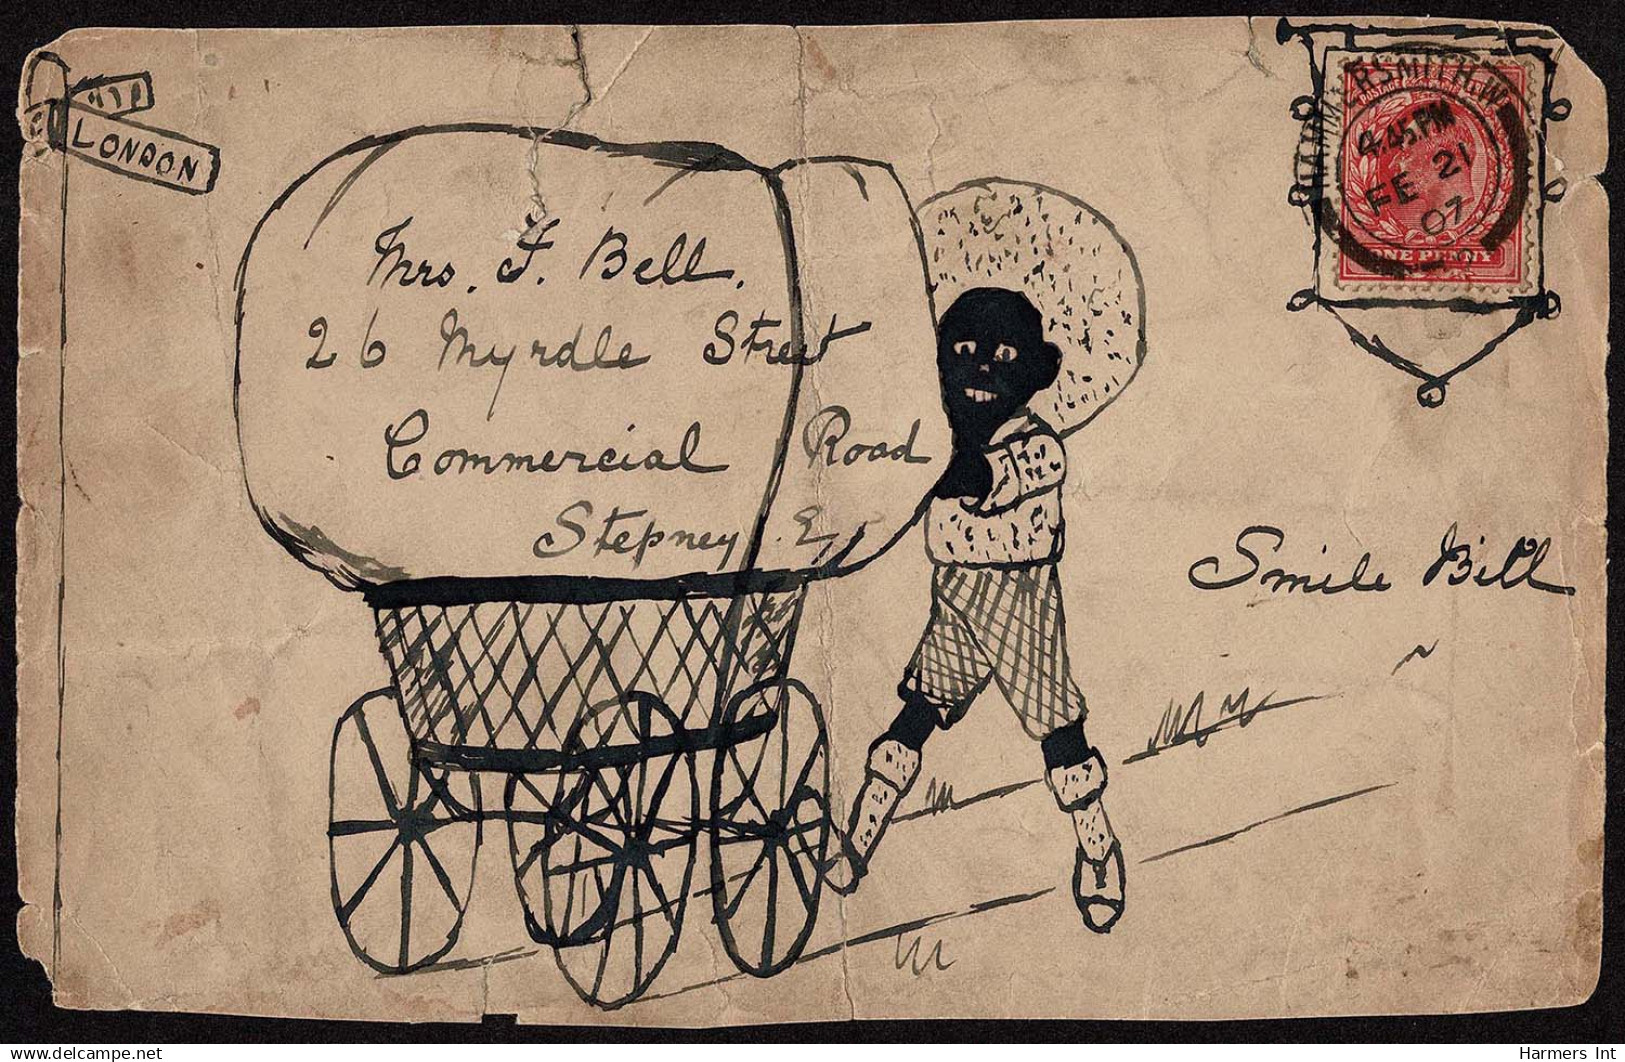 LONDON
Mrs. F. Bell.
26 Myrdle Street
Commercial Road
Stepney. E.
Smile Bill
HAMMERSMITH. W.
4.45.PM
FE 21
07
POSTAGE
ONE PENNY
delcampe.net
Harmers Int